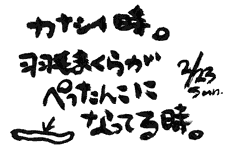 カナシイ時。
羽毛まくらが
ぺったんこに
なってる時。
2/23
Sun.